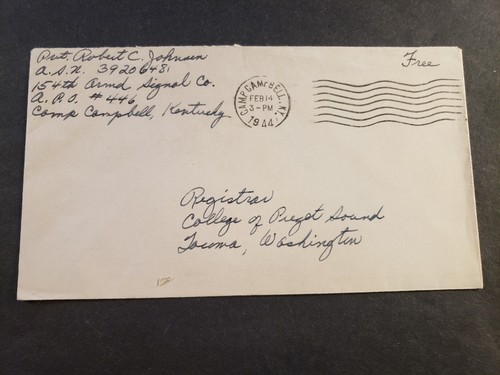 Pvt. Robert C. Johnsen
A.S.N. 39206481
154th Armd Signal Co.
A.P.O. # 446
Camp Campbell, Kentucky
Free
CAMP CAMPBELL, KY.
FEB 14
3-PM
1944
Registrar
College of Puget Sound
Tacoma, Washington